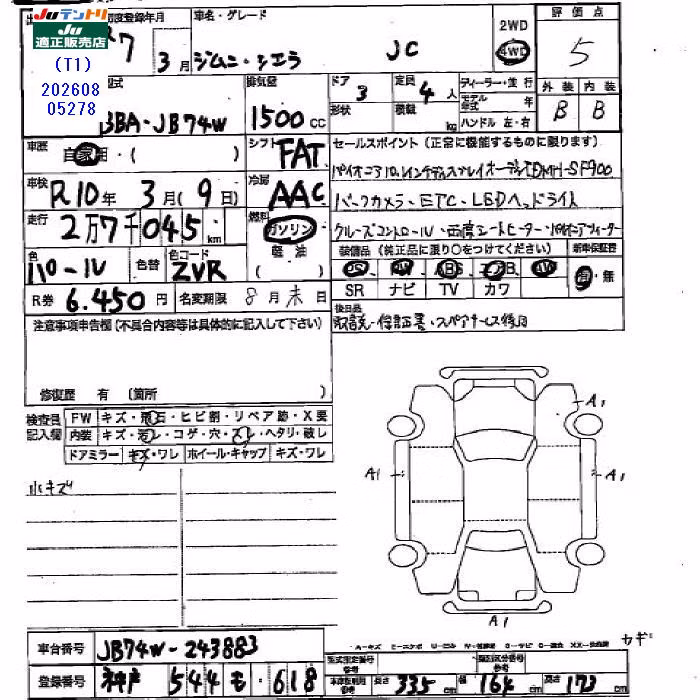 Juテントリ
Ju
適正販売店
(T1)
202608
05278
初度登録年月
R7 3月
車名・グレード
ジムニ・シエラ JC
2WD
4WD
評価点
5
型式
3BA-JB74W
排気量
1500 CC
ドア
3
形状
定員
4人
積載
kg
ディーラー・並行
モデル年式 年
ハンドル 左・右
外装 内装
B B
車歴
自家用・( )
シフト
FAT
セールスポイント (正常に機能するものに限ります)
パイオニア10インチディスプレイオーディオDMH-SF900
バックカメラ・ETC・LEDヘッドライト
クルーズコントロール・両席シートヒーター・
車検
R10年 3月(9日)
冷房
AAC
走行
2万7千045km
燃料
ガソリン
軽油
( )
装備品 (純正品に限り○をつけてください)
新車保証書
有・無
PS PW ABS エアB AW
SR ナビ TV カワ
色
パール
色替
色コード
ZVR
R券 6,450円
名変期限 8月末日
後日品
取説・保証書・スペアキーは後日
注意事項申告欄 (不具合内容等は具体的に記入して下さい)
修復歴 有 〔箇所 〕
検査員
記入欄
FW キズ・飛石・ヒビ割・リペア跡・X要
内装 キズ・汚レ・コゲ・穴・スレ・ヘタリ・破レ
ドアミラー キズ・ワレ ホイール・キャップ キズ・ワレ
小キズ
A1
A1
A1
A1
A1
カギ
車台番号 JB74W-243883
登録番号 神戸 544 も・618
型式指定番号
参考
類別区分番号
参考
車体寸法
参考
長さ 335cm 幅 164cm 高さ 173cm